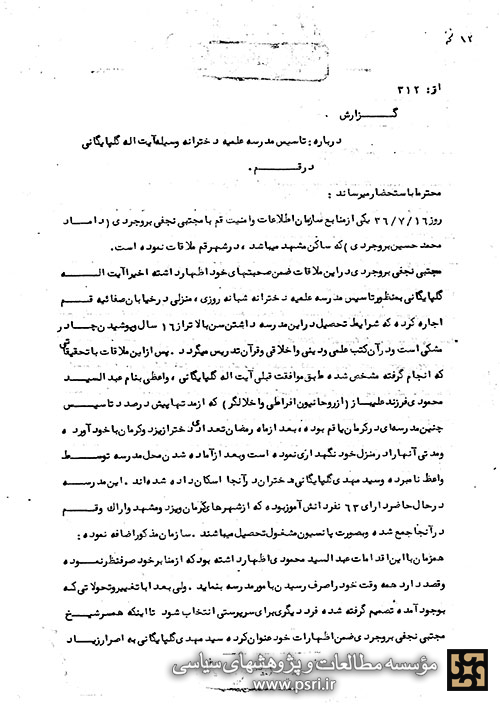 ۱۲
از: ۳۱۲
گزارش .
درباره: تاسیس مدرسه علمیه دخترانه وسیله آیت اله گلپایگانی
در قم .
محترما باستحضار میرساند :
روز ۳۶/۷/۱۶ یکی از منابع سازمان اطلاعات و امنیت قم با مجتبی نجفی بروجردی (داماد
محمد حسین بروجردی) که ساکن مشهد میباشد ، در شهر قم ملاقات نموده است.
مجتبی نجفی بروجردی در این ملاقات ضمن صحبتهای خود اظهار داشته اخیرا آیت اله
گلپایگانی بمنظور تاسیس مدرسه علمیه دخترانه شبانه روزی ، منزلی در خیابان صفائیه قم
اجاره کرده که شرایط تحصیل در این مدرسه داشتن سن بالاتر از ۱۶ سال و پوشیدن چادر
مشکی است و در آن کتب علمی و دینی و اخلاقی و قرآن تدریس میگردد . پس از این ملاقات با تحقیقاتی
که انجام گرفته مشخص شده طبق موافقت قبلی آیت اله گلپایگانی ، واعظی بنام عبد السید
محمودی فرزند علیناز (از روحانیون افراطی و اخلالگر) که از مدتها پیش در صدد تاسیس
چنین مدرسه‌ای در کرمان یا قم بوده ، بعد از ماه رمضان تعدادی دختر از یزد و کرمان با خود آورده
و مدتی آنها را در منزل خود نگهداری نموده است و بعد از آماده شدن محل مدرسه توسط
واعظ نامبرده و سید مهدی گلپایگانی دختران در آنجا اسکان داده شده‌اند . این مدرسه
در حال حاضر دارای ۶۳ نفر دانش آموز بوده که از شهرهای کرمان و یزد و مشهد و اراك و قم
در آنجا جمع شده و بصورت پانسیون مشغول تحصیل میباشند . سازمان مذکور اضافه نموده :
همزمان با این اقدامات عبد السید محمودی اظهار داشته بود که از منابر خود صرفنظر نموده
و قصد دارد همه وقت خود را صرف رسیدن بامور مدرسه بنماید . ولی بعدا با تغییر و تحولاتی که
بوجود آمده تصمیم گرفته شده فرد دیگری برای سرپرستی انتخاب شود تا اینکه همسر شیخ
مجتبی نجفی بروجردی ضمن اظهارات خود عنوان کرده سید مهدی گلپایگانی به اصرار زیاد
مؤسسه مطالعات و پژوهشهای سیاسی
www.psri.ir